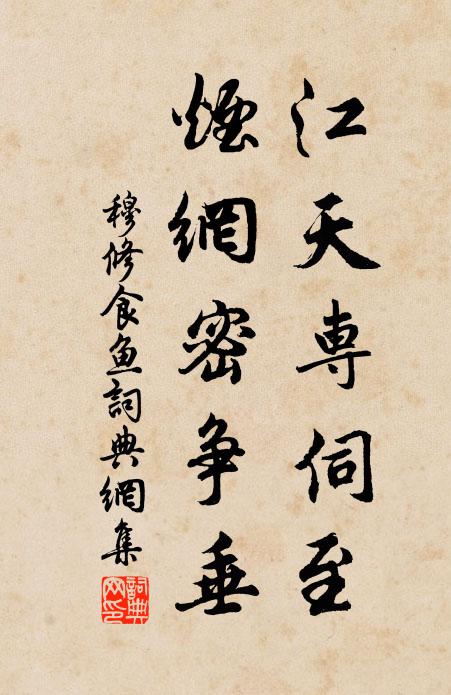 江天専伺至
煙網密争垂
穆修食魚詞典網集
詞典网印